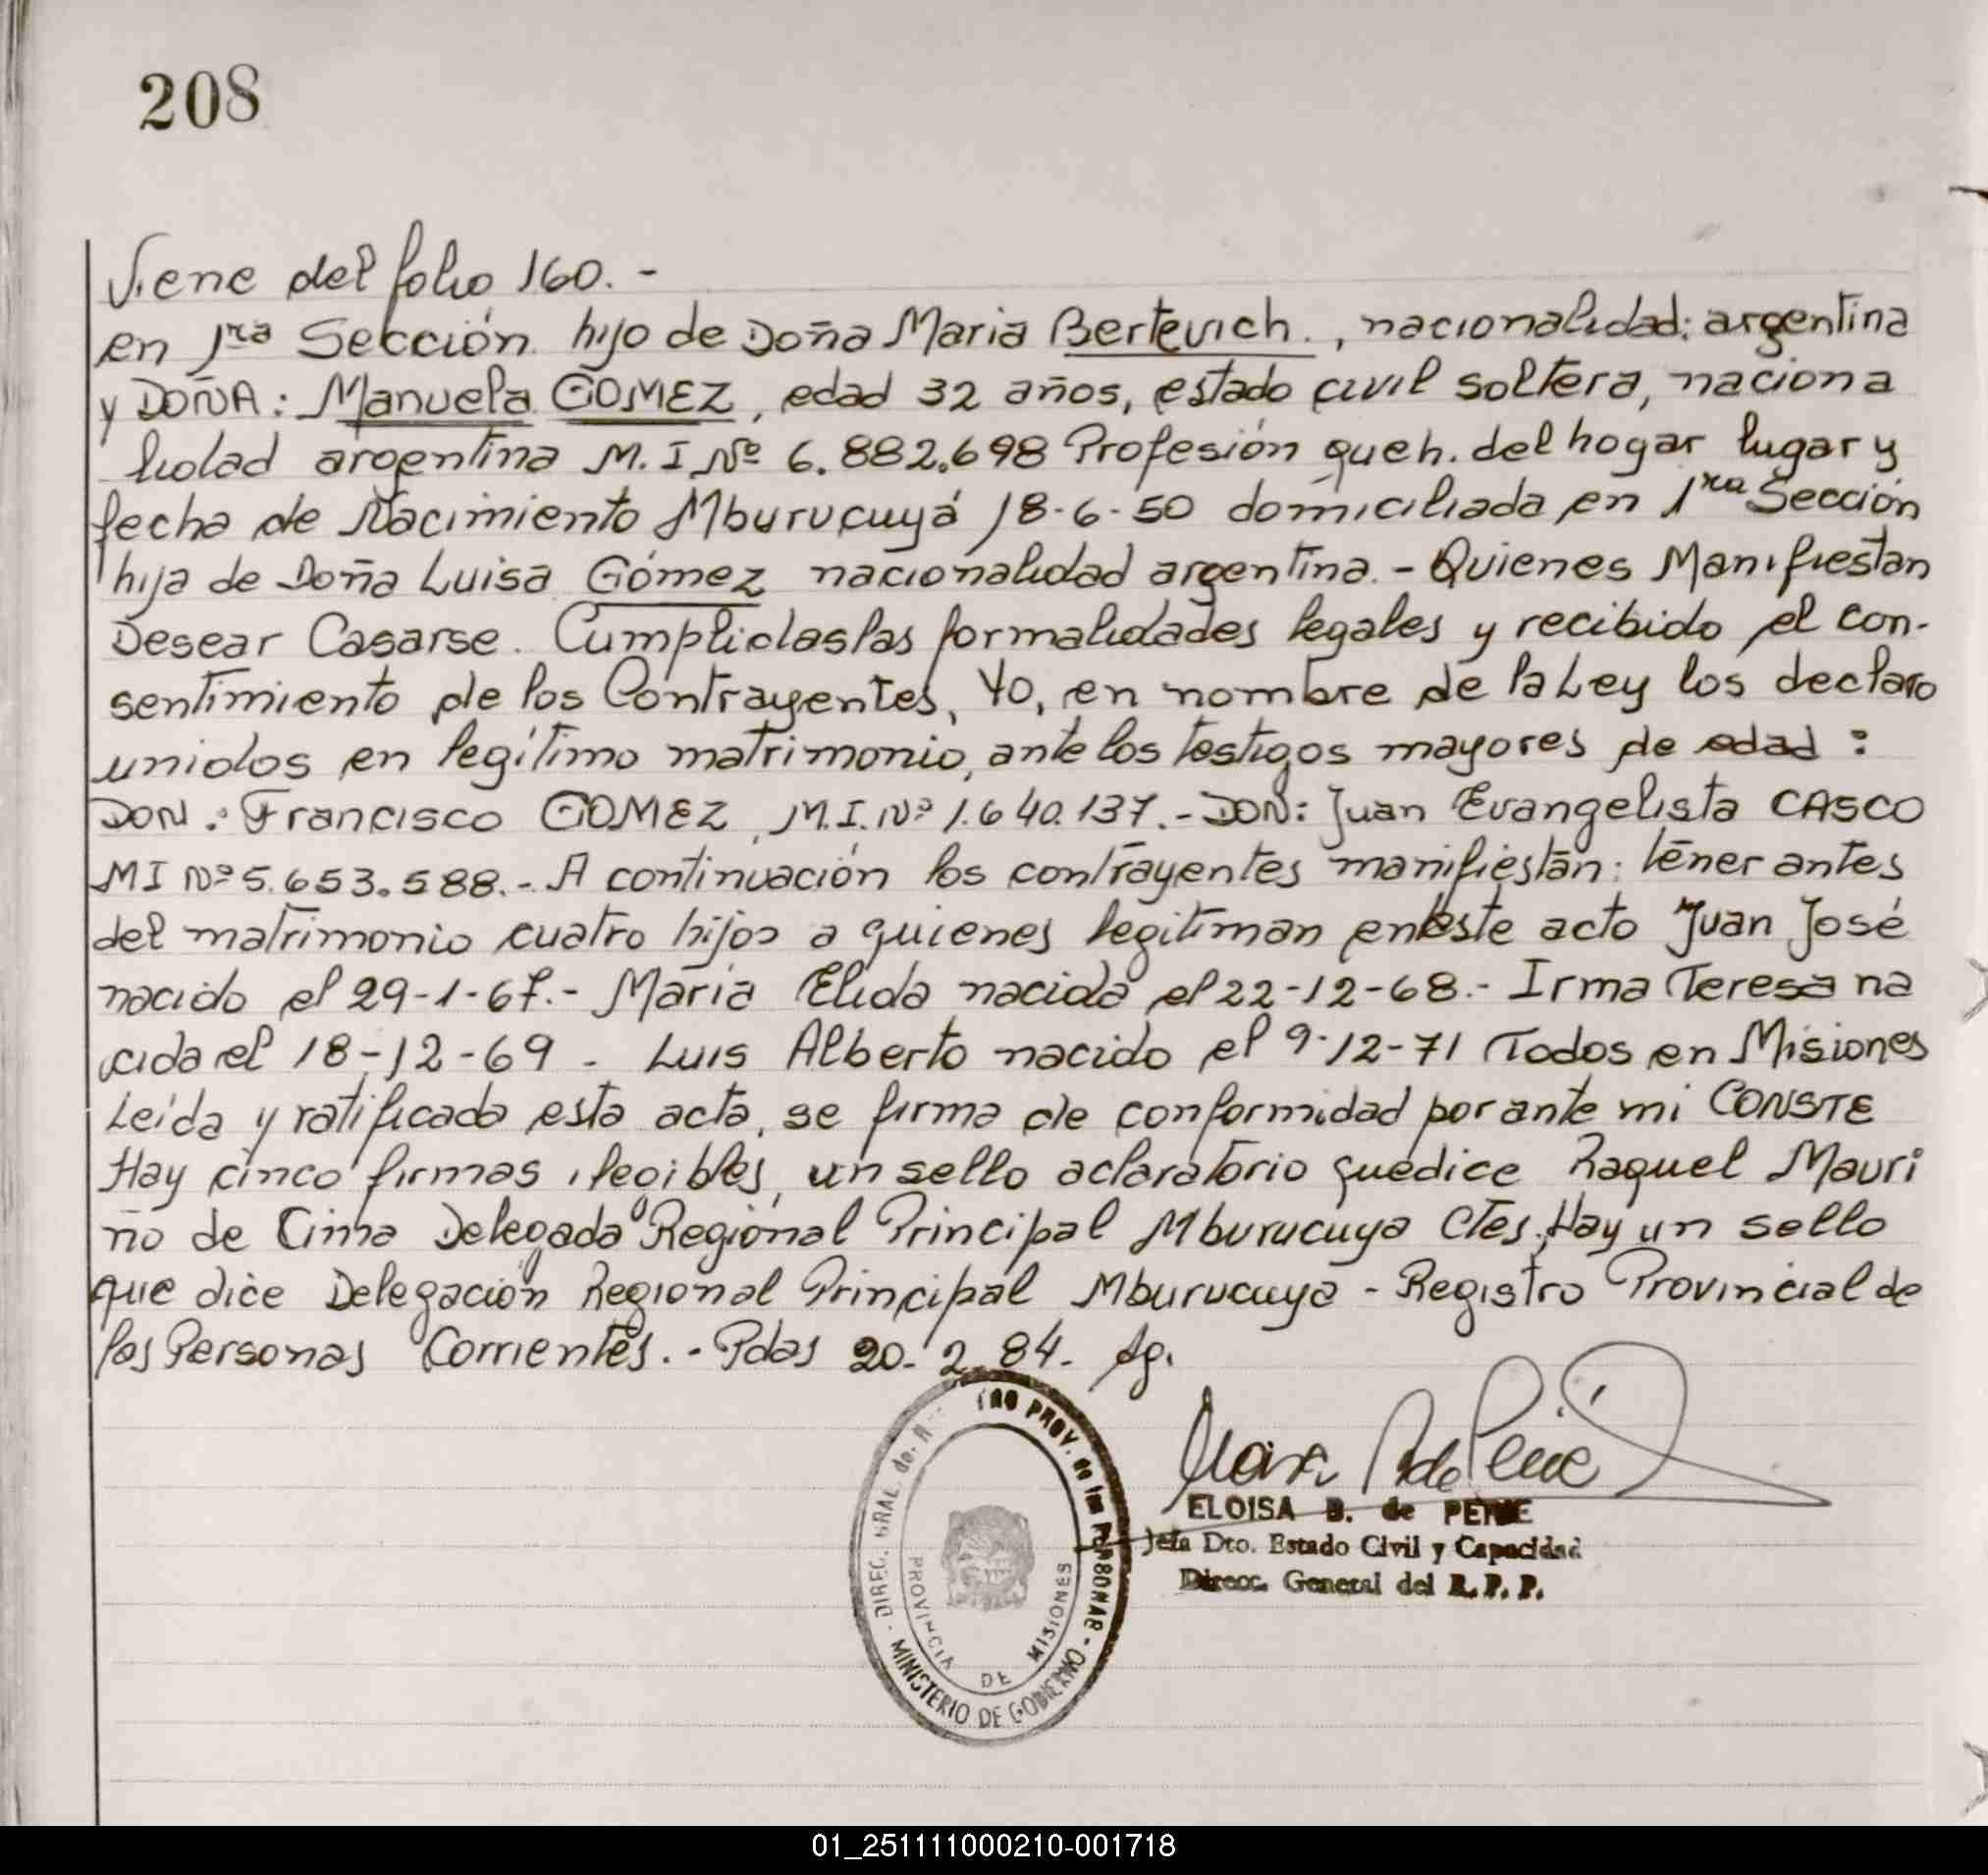 208
Viene del folio 160.-
en 1ra Sección hijo de Doña Maria Bertevich., nacionalidad: argentina
y DOÑA: Manuela GOMEZ, edad 32 años, estado civil soltera, naciona
lidad argentina M.I Nº 6.882.698 Profesión queh. del hogar lugar y
fecha de Nacimiento Mburucuyá 18-6-50 domiciliada en 1ra Sección
hija de Doña Luisa Gómez nacionalidad argentina.- Quienes Manifiestan
Desear Casarse. Cumplidas las formalidades legales y recibido el con-
sentimiento de los Contrayentes, Yo, en nombre de la Ley los declaro
unidos en legítimo matrimonio, ante los testigos mayores de edad:
DON: Francisco GOMEZ, M.I.Nº 1.640.137.- DON: Juan Evangelista CASCO
MI Nº 5.653.588.- A continuación los contrayentes manifiestan: tener antes
del matrimonio cuatro hijos a quienes legitiman en este acto Juan José
nacido el 29-1-67.- María Elida nacida el 22-12-68.- Irma Teresa na
cida el 18-12-69 - Luis Alberto nacido el 9-12-71 Todos en Misiones
Leída y ratificada esta acta, se firma de conformidad por ante mi CONSTE
Hay cinco firmas ilegibles, un sello aclaratorio que dice Raquel Mauri
ño de Cima Delegada Regional Principal Mburucuya Ctes, Hay un sello
que dice Delegación Regional Principal Mburucuya - Registro Provincial de
las Personas Corrientes.- Pdas 20-2-84.
PROV. de las PERSONAS - MINISTERIO DE GOBIERNO - DIREC. GRAL. del
PROVINCIA DE MISIONES
ELOISA B. de PEINE
Jefa Dto. Estado Civil y Capacidad
Direcc. General del R. P. P.
01_251111000210-001718